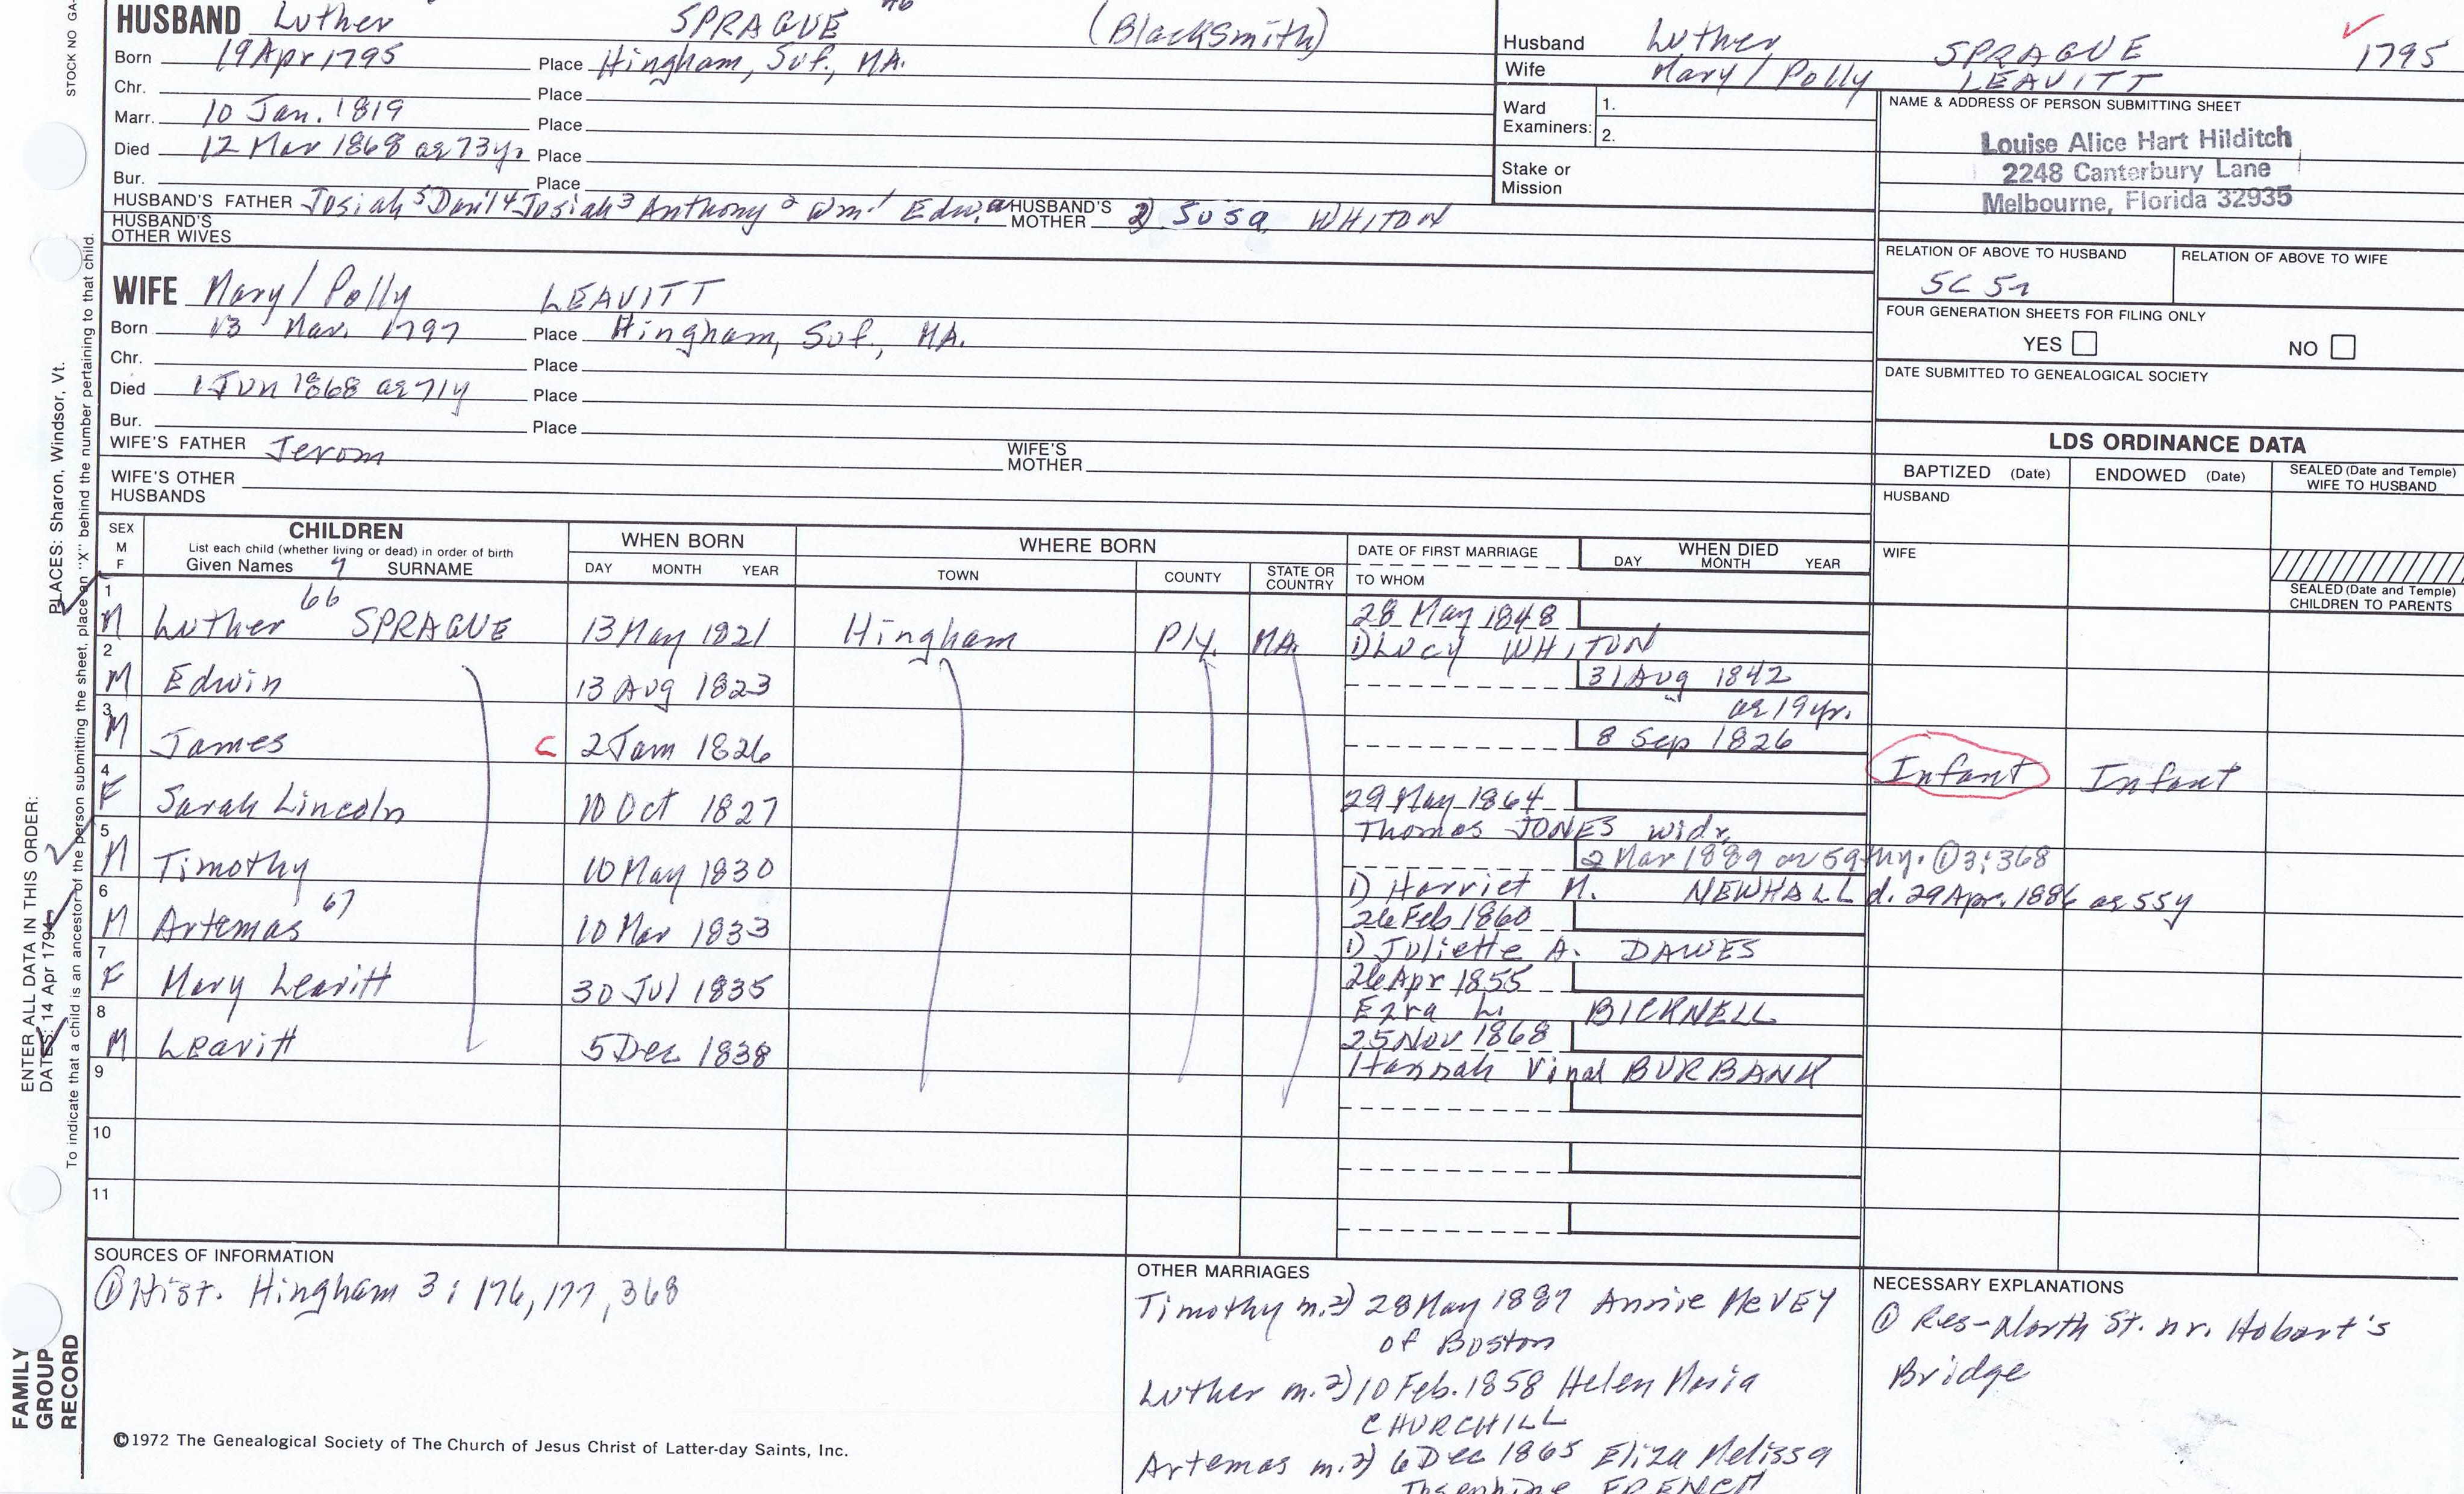 STOCK NO GA-
HUSBAND Luther SPRAGUE 46 (BlackSmith)
Born 19 Apr 1795 Place Hingham, Suf., MA.
Chr. Place
Marr. 10 Jan. 1819 Place
Died 12 Mar 1868 ae 73y. Place
Bur. Place
HUSBAND'S FATHER Josiah 5 Danil 4 Josiah 3 Anthony 2 Wm. 1 Edw. HUSBAND'S MOTHER 2) Susa WHITON
HUSBAND'S OTHER WIVES
Husband Luther SPRAGUE 1795
Wife Mary / Polly LEAVITT
Ward Examiners: 1.
2.
Stake or Mission
NAME & ADDRESS OF PERSON SUBMITTING SHEET
Louise Alice Hart Hilditch
2248 Canterbury Lane
Melbourne, Florida 32935
RELATION OF ABOVE TO HUSBAND RELATION OF ABOVE TO WIFE
5C 5r
FOUR GENERATION SHEETS FOR FILING ONLY
YES NO
DATE SUBMITTED TO GENEALOGICAL SOCIETY
WIFE Mary / Polly LEAVITT
Born 13 Mar. 1797 Place Hingham, Suf., MA.
Chr. Place
Died 1 Jun 1868 ae 71y Place
Bur. Place
WIFE'S FATHER Jerom WIFE'S MOTHER
WIFE'S OTHER HUSBANDS
LDS ORDINANCE DATA
BAPTIZED (Date) ENDOWED (Date) SEALED (Date and Temple) WIFE TO HUSBAND
HUSBAND
WIFE
SEALED (Date and Temple) CHILDREN TO PARENTS
SEX M F
CHILDREN
List each child (whether living or dead) in order of birth
Given Names 7 SURNAME
WHEN BORN
DAY MONTH YEAR
WHERE BORN
TOWN COUNTY STATE OR COUNTRY
DATE OF FIRST MARRIAGE
TO WHOM
WHEN DIED
DAY MONTH YEAR
1 M Luther 66 SPRAGUE 13 May 1821 Hingham Ply. MA. 28 May 1848
1) Lucy WHITON
2 M Edwin 13 Aug 1823 31 Aug 1842
ae 19yr.
3 M James C 2 Jam 1826 8 Sep 1826 Infant Infant
4 F Sarah Lincoln 10 Oct 1827 29 May 1864
Thomas JONES widr.
5 M Timothy 10 May 1830 2 Mar 1889 ae 59 Hy. ① 3:368
1) Harriet M. NEWHALL d. 29 Apr. 1886 ae 55y
6 M Artemas 67 10 Mar 1833 26 Feb 1860
1) Juliette A. DAWES
7 F Mary Leavitt 30 Jul 1835 26 Apr 1855
Ezra L. BICKNELL
8 M Leavitt 5 Dec 1838 25 Nov 1868
Hannah Vinal BURBANK
9
10
11
SOURCES OF INFORMATION
① Hist. Hingham 3: 176, 177, 368
OTHER MARRIAGES
Timothy m. 2) 28 May 1887 Annie McVEY
of Boston
Luther m. 2) 10 Feb. 1858 Helen Maria
CHURCHILL
Artemas m. 2) 6 Dec 1865 Eliza Melissa
Josephine FRENCH
NECESSARY EXPLANATIONS
① Res-North St. nr. Hobart's
Bridge
©1972 The Genealogical Society of The Church of Jesus Christ of Latter-day Saints, Inc.
FAMILY
GROUP
RECORD
ENTER ALL DATA IN THIS ORDER:
DATES: 14 Apr 1794
PLACES: Sharon, Windsor, Vt.
To indicate that a child is an ancestor of the person submitting the sheet, place an "X" behind the number pertaining to that child.